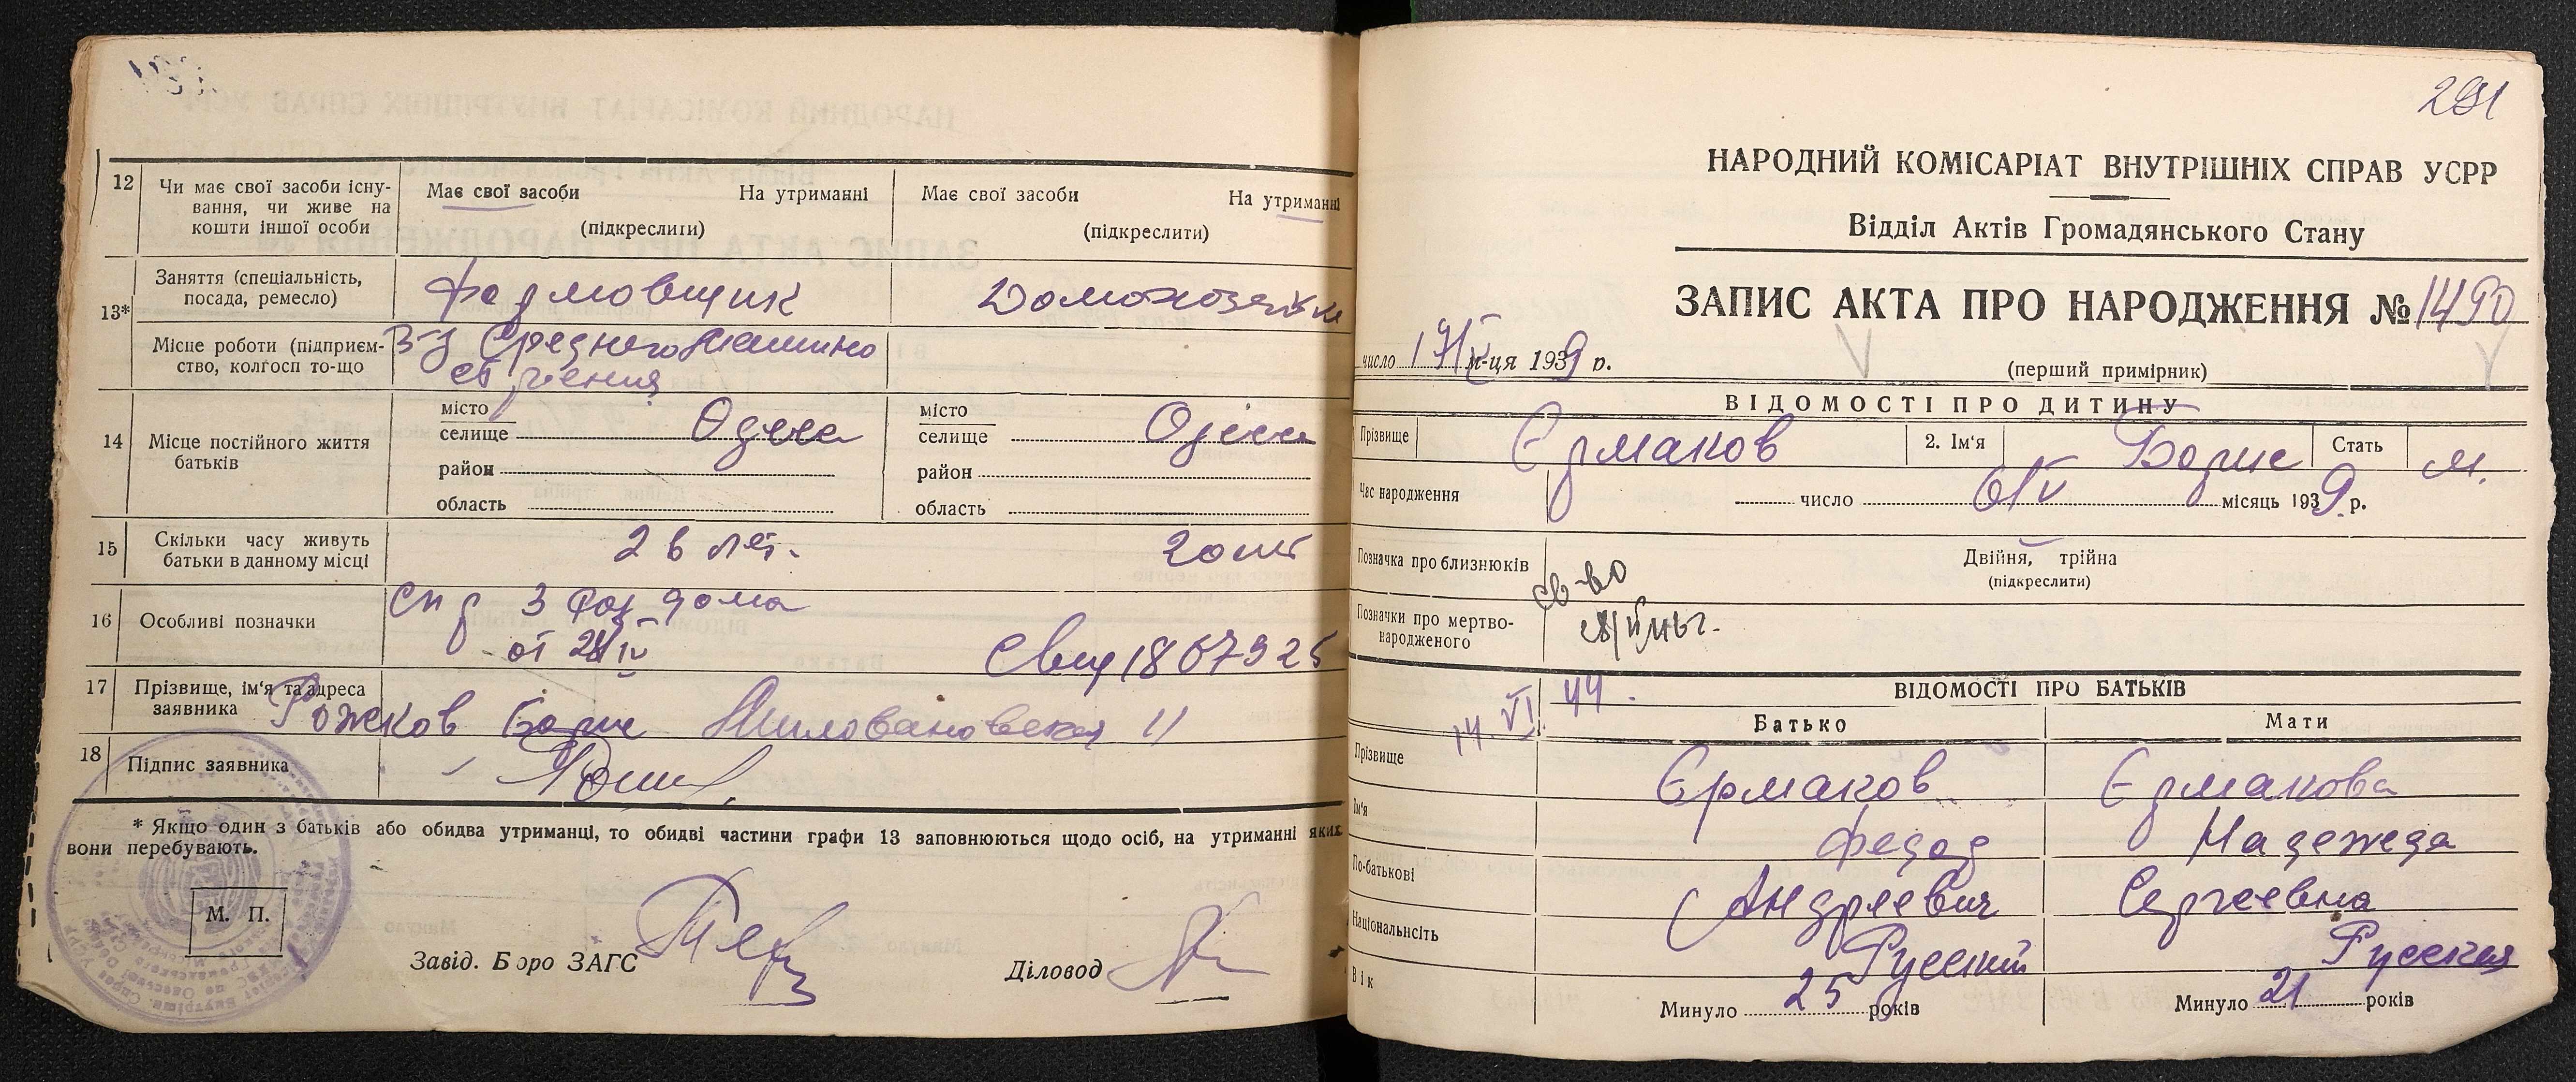 12 Чи має свої засоби існу-
вання, чи живе на
кошти іншої особи
Має свої засоби На утриманні
(підкреслити)
Має свої засоби На утриманні
(підкреслити)
13* Заняття (спеціальність,
посада, ремесло)
Формовщик
Домохозяйка
Місце роботи (підприєм-
ство, колгосп то-що
З-д Среднего Машино
строения
14 Місце постійного життя
батьків
місто
селище Одесса
район
область
місто
селище Одесса
район
область
15 Скільки часу живуть
батьки в данному місці
лет.
16 Особливі позначки
3 род дома
от IV
1867925
17 Прізвище, ім'я та адреса
заявника
Рожков Борис Миловановская 11
18 Підпис заявника
* Якщо один з батьків або обидва утриманці, то обидві частини графи 13 заповнюються щодо осіб, на утриманні яких
вони перебувають.
М. П.
Завід. Бюро ЗАГС
Діловод
291
НАРОДНИЙ КОМІСАРІАТ ВНУТРІШНІХ СПРАВ УСРР
Відділ Актів Громадянського Стану
ЗАПИС АКТА ПРО НАРОДЖЕННЯ № 1490
число м-ця 1939 р.
(перший примірник)
ВІДОМОСТІ ПРО ДИТИНУ
Прізвище Єрмаков 2. Ім'я Борис Стать м.
Час народження число IV місяць 1939 р.
Позначка про близнюків
Двійня, трійна
(підкреслити)
св-во
Позначки про мертво-
народженого
14. VI. 44.
ВІДОМОСТІ ПРО БАТЬКІВ
Батько Мати
Прізвище Єрмаков Єрмакова
Ім'я Федор Надежда
По-батькові Андреевич Сергеевна
Національність Русский Русская
Вік Минуло 25 років Минуло 21 років